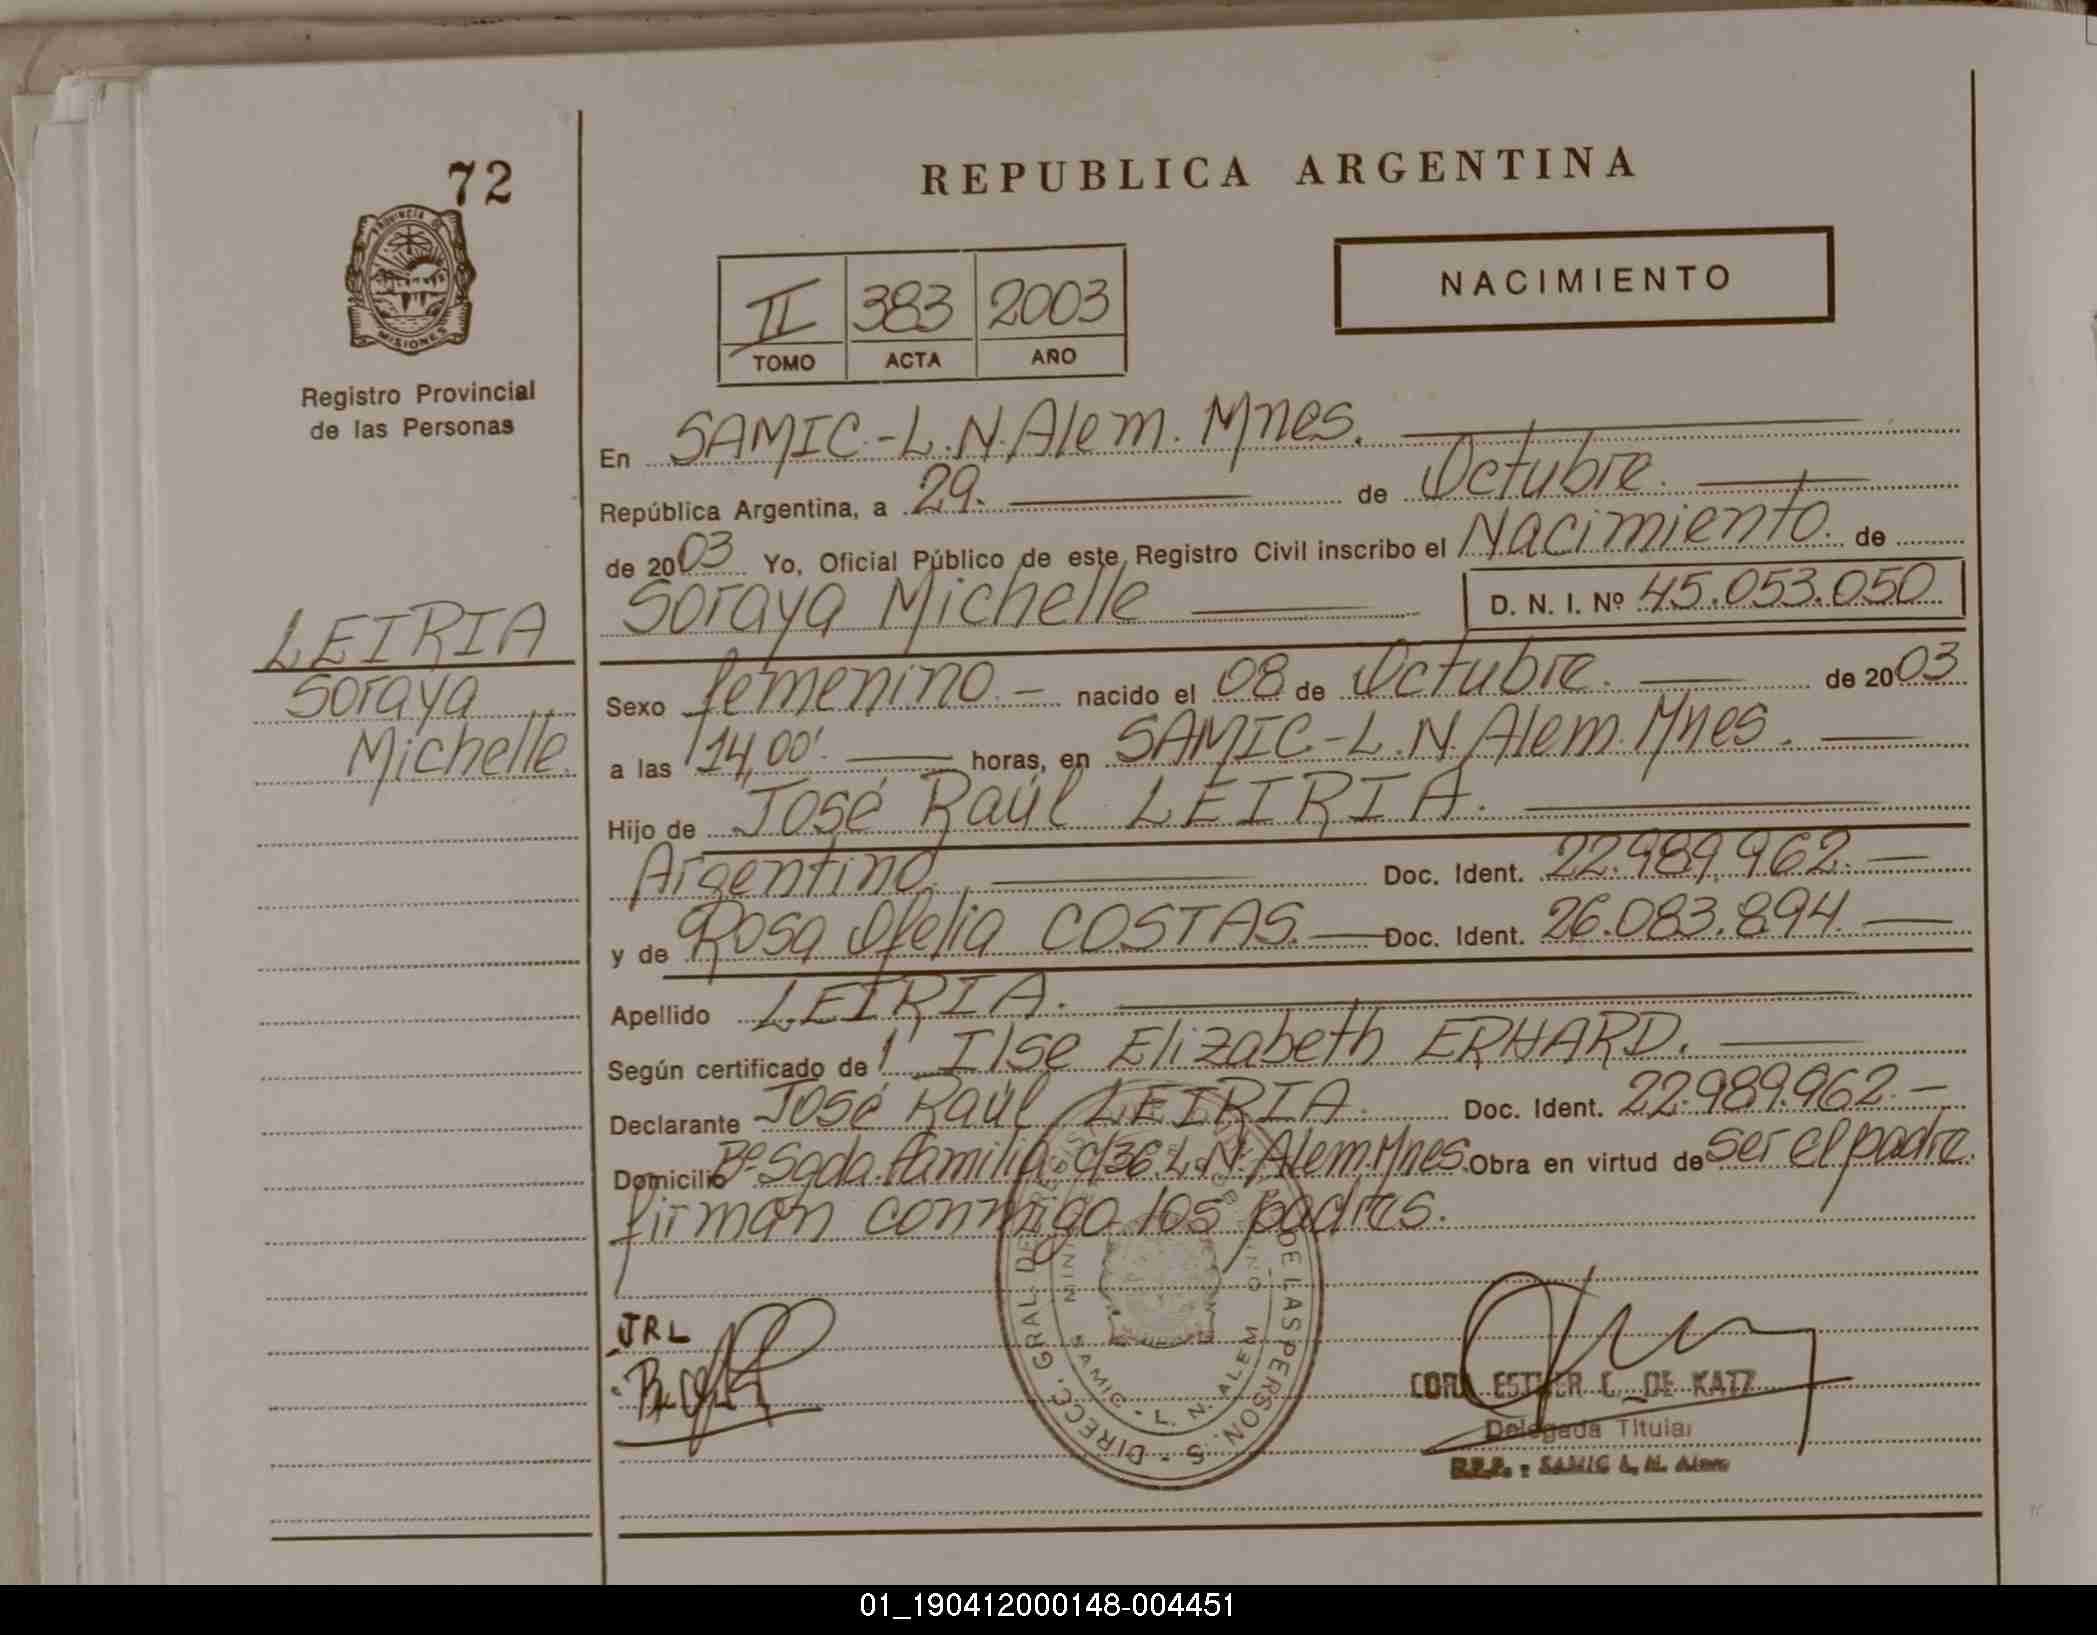 72
PROVINCIA DE
MISIONES
Registro Provincial
de las Personas
LEIRIA
Soraya
Michelle.
REPUBLICA ARGENTINA
II 383 2003
TOMO ACTA AÑO
NACIMIENTO
En SAMIC.-L.N.Alem. Mnes.
República Argentina, a 29. de Octubre.
de 2003 Yo, Oficial Público de este Registro Civil inscribo el Nacimiento. de
Soraya Michelle D. N. I. Nº 45.053.050
Sexo femenino.- nacido el 08 de Octubre. de 2003
a las 14,00'. horas, en SAMIC-L.N.Alem.Mnes.
Hijo de José Raúl LEIRIA.
Argentino. Doc. Ident. 22.989.962.
y de Rosa Ofelia COSTAS. Doc. Ident. 26.083.894.
Apellido LEIRIA.
Según certificado de Ilse Elizabeth ERHARD.
Declarante José Raúl LEIRIA. Doc. Ident. 22.989.962.-
Domicilio Bº Sgda. familia. c/36.L.N.Alem.Mnes. Obra en virtud de ser el padre.
firman conmigo los padres.
JRL
DIRECC. GRAL. DE LAS PERSONAS
SAMIC - L. N. ALEM
CORA ESTHER C. DE KATZ
Delegada Titular
R.P.P. - SAMIC L. N. Alem
01_190412000148-004451